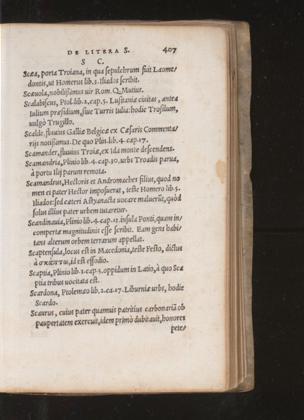 DE LITERA S. 407
S C.
Scæa, porta Troiana, in qua sepulchrum fuit Laome-
dontis, ut Homerus lib. 3. Iliados scribit.
Scæuola, nobilissimus uir Rom. Q. Mutius.
Scalabiscus, Ptol. lib. 2. cap. 5. Lusitaniæ ciuitas, antea
Iulium præsidium, siue Turris Iulia: hodie Trosilum,
uulgò Trugillo.
Scalde, fluuius Galliæ Belgicæ ex Cæsaris Commenta-
rijs notissimus. De quo Plin. lib. 4. cap. 17.
Scamander, fluuius Troiæ, ex Ida monte descendens.
Scamandria, Plinio lib. 4. cap. 30. urbs Troadis parua,
à portu Ilij parum remota.
Scamandrius, Hectoris et Andromaches filius, quod no-
men ei pater Hector imposuerat, teste Homero lib. 5.
Iliados: sed cæteri Astyanacta uocare maluerūt, quòd
solus illius pater urbem iuuaretur.
Scandinauia, Plinio lib. 4. cap. 12. insula Ponti, quam in-
compertæ magnitudinis esse scribit. Eam gens habi-
tans alterum orbem terrarum appellat.
Scaptensula, locus est in Macedonia, teste Festo, dictus
à σκάπτειν, id est effodio.
Scaptia, Plinio lib. 2. cap. 5. oppidum in Latio, à quo Sca
ptia tribus uocitata est.
Scardona, Ptolemæo lib. 2. ca. 17. Liburniæ urbs, hodie
Scardo.
Scaurus, cuius pater quamuis patritius carbonariā ob
paupertatem exercuit, idem primò dubitauit, honores
pete-